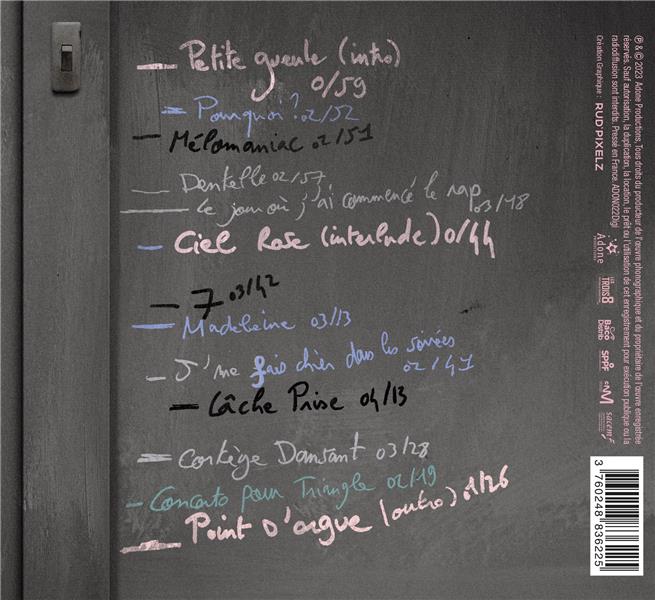 Petite gueule (intro)
0/59
Pourquoi? 02/52
Mélomaniac 02/51
Dentelle 02/57
Le jour où j'ai commencé le rap 03/18
Ciel Rose (interlude) 0/44
7 03/42
Madeleine 03/13
J'me fais chier dans les soirées
02/41
Lâche Prise 04/13
Cortège Dansant 03/28
Concerto pour Triangle 02/19
Point D'orgue (outro) 01/26
℗ & © 2023 Adone Productions, Tous droits du producteur de l'œuvre phonographique et du propriétaire de l'œuvre enregistrée
réservés. Sauf autorisation, la duplication, la location, le prêt ou l'utilisation de cet enregistrement pour exécution publique ou la
radiodiffusion sont interdits. Pressé en France. ADON022Digi
Création Graphique : RUD'PIXELZ
Adone
LES TROIS 8
Baco Distrib
SPPF
CNM
sacem
3 760248 836225